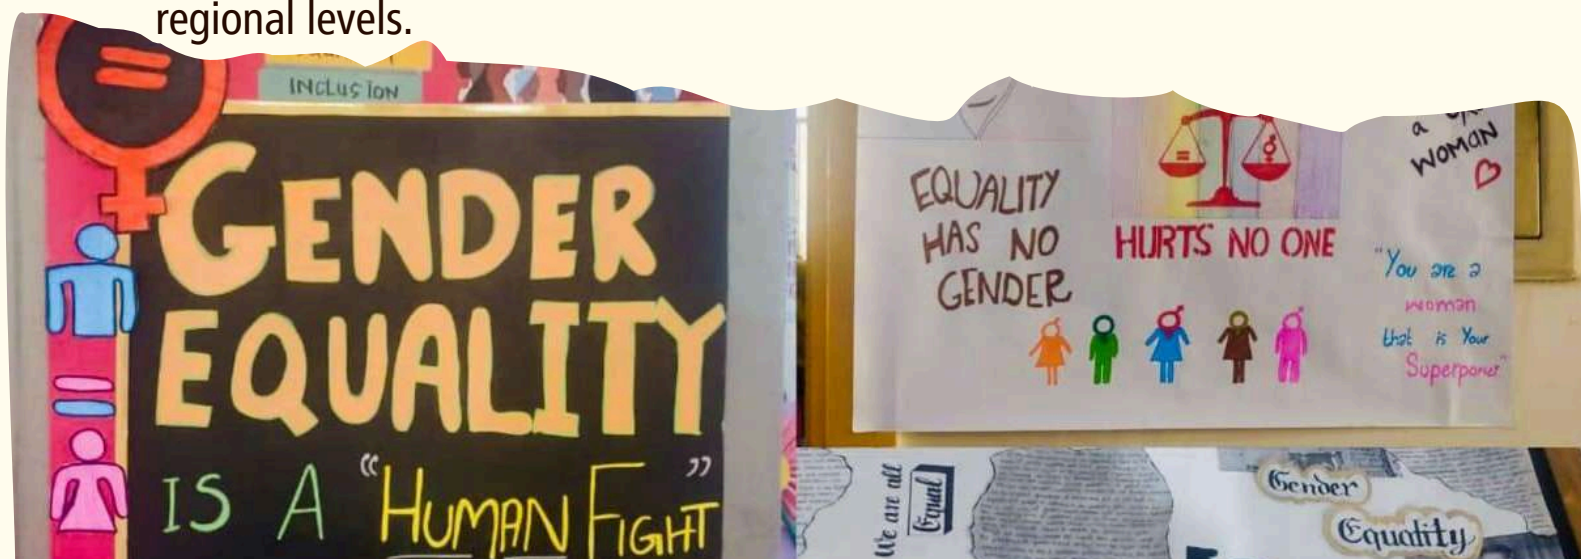 regional levels.
INCLUSION
GENDER
EQUALITY
IS A "HUMAN FIGHT"
EQUALITY
HAS NO
GENDER
HURTS NO ONE
a
WOMAN
"You are a
woman
that is Your
Superpower"
We are all
Equal
Gender
Equality